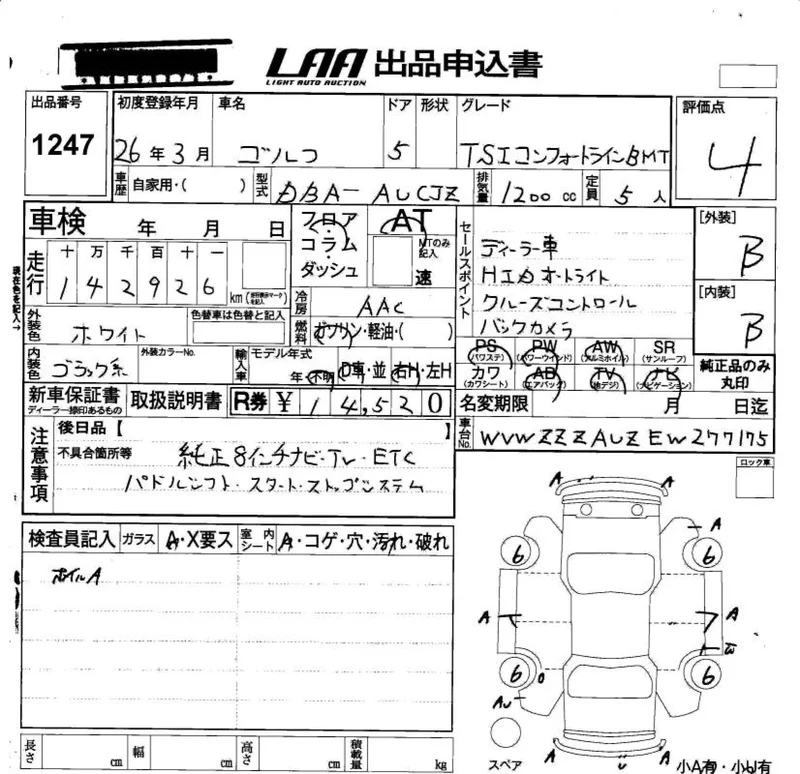 LAA 出品申込書
LIGHT AUTO AUCTION
出品番号
1247
初度登録年月
26年3月
車名
ゴルフ
ドア
5
形状
グレード
TSIコンフォートラインBMT
評価点
4
車歴 自家用・( )
型式 DBA-AUCJZ
排気量 1200cc
定員 5人
車検 年 月 日
フロア・コラム・ダッシュ
AT
MTのみ記入
速
走行
十 万 千 百 十 一
1 4 2 9 2 6 km
現在色を記入→
冷房 AAC
燃料 ガソリン・軽油・( )
セールスポイント
ディーラー車
HIDオートライト
クルーズコントロール
バックカメラ
[外装]
B
[内装]
B
外装色 ホワイト
色替車は色替と記入
内装色 ブラック系
外装カラーNo.
輸入車
モデル年式
年・不明
D車・並
右H・左H
PS (パワステ)
PW (パワーウインド)
AW (アルミホイル)
SR (サンルーフ)
カワ (カワシート)
AB (エアバック)
TV (地デジ)
ナビ (ナビゲーション)
純正品のみ丸印
新車保証書
ディーラー捺印あるもの
取扱説明書
R券 ¥ 14,520
名変期限 月 日迄
車台No. WVWZZZAUZEW277175
注意事項
後日品【 】
不具合箇所等
純正8インチナビ・TV・ETC
パドルシフト・スタートストップシステム
ロック車
検査員記入
ガラス A・X要ス
室内シート A・コゲ・穴・汚れ・破れ
ホイルA
A A
A
6 6
A A
W
6 6
Au
A A
U
スペア
小A有・小U有
長さ cm
幅 cm
高さ cm
積載量 kg